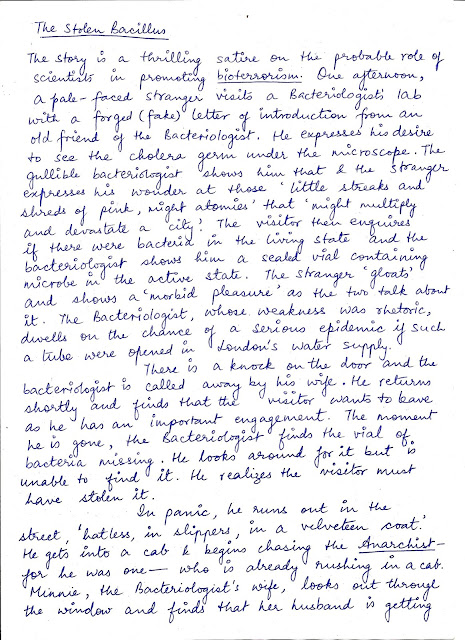 The Stolen Bacillus
The story is a thrilling satire on the probable role of
scientists in promoting bioterrorism. One afternoon,
a pale-faced stranger visits a Bacteriologist's lab
with a forged (fake) letter of introduction from an
old friend of the Bacteriologist. He expresses his desire
to see the cholera germ under the microscope. The
gullible bacteriologist shows him that & the stranger
expresses his wonder at those 'little streaks and
shreds of pink, might atomies' that 'might multiply
and devastate a city'. The visitor then enquires
if there were bacteria in the living state and the
bacteriologist shows him a sealed vial containing
microbe in the active state. The stranger 'gloats'
and shows a 'morbid pleasure' as the two talk about
it. The Bacteriologist, whose weakness was rhetoric,
dwells on the chance of a serious epidemic if such
a tube were opened in London's water supply.
There is a knock on the door and the
bacteriologist is called away by his wife. He returns
shortly and finds that the visitor wants to leave
as he has an important engagement. The moment
he is gone, the Bacteriologist finds the vial of
bacteria missing. He looks around for it but is
unable to find it. He realizes the visitor must
have stolen it.
In panic, he runs out in the
street, 'hatless, in slippers, in a velveteen coat.'
He gets into a cab & begins chasing the Anarchist—
for he was one— who is already rushing in a cab.
Minnie, the Bacteriologist's wife, looks out through
the window and finds that her husband is getting